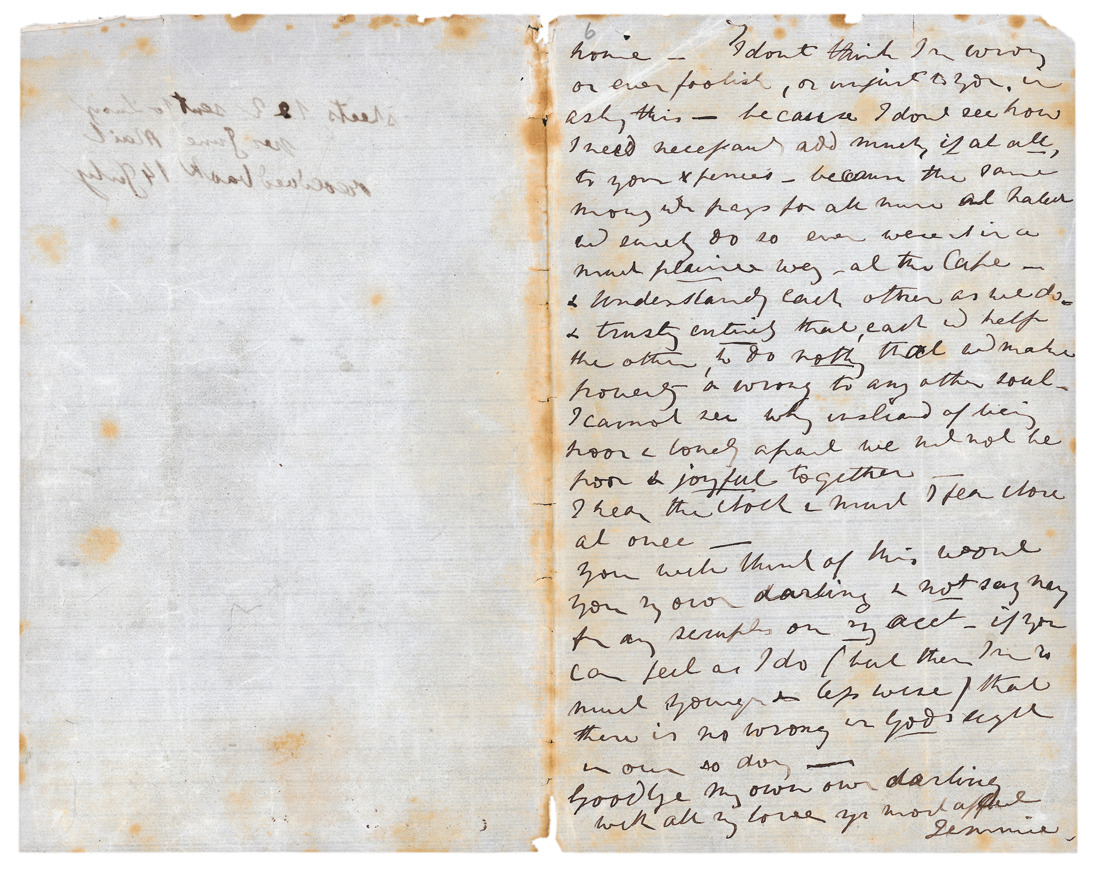 sheets 1 & 2 sent to Lucy
per June Mail
received back 14 July
6
home — I dont think I'm wrong
or even foolish, or unjust to you, in
asking this — because I dont see how
I need necessarily add much, if at all,
to your expenses — because the same
money wh pays for all
wd surely do so even were it in a
much plainer way — at the Cape —
& understandg each other as we do —
& trustg entirely that each wd help
the other, to do nothg that wd make
poverty a wrong to any other soul —
I cannot see why instead of being
poor & lonely apart we md not be
poor & joyful together —
I hear the clock & must I fear close
at once —
You will think of this wont
you my own darling & not say nay
for any scruples on my acct — if you
can feel as I do (but then I'm so
much younger & less wise) that
there is no wrong in Gods sight
in our so doing —
Goodbye my own own darling
with all my love yr most affte
Jemmie